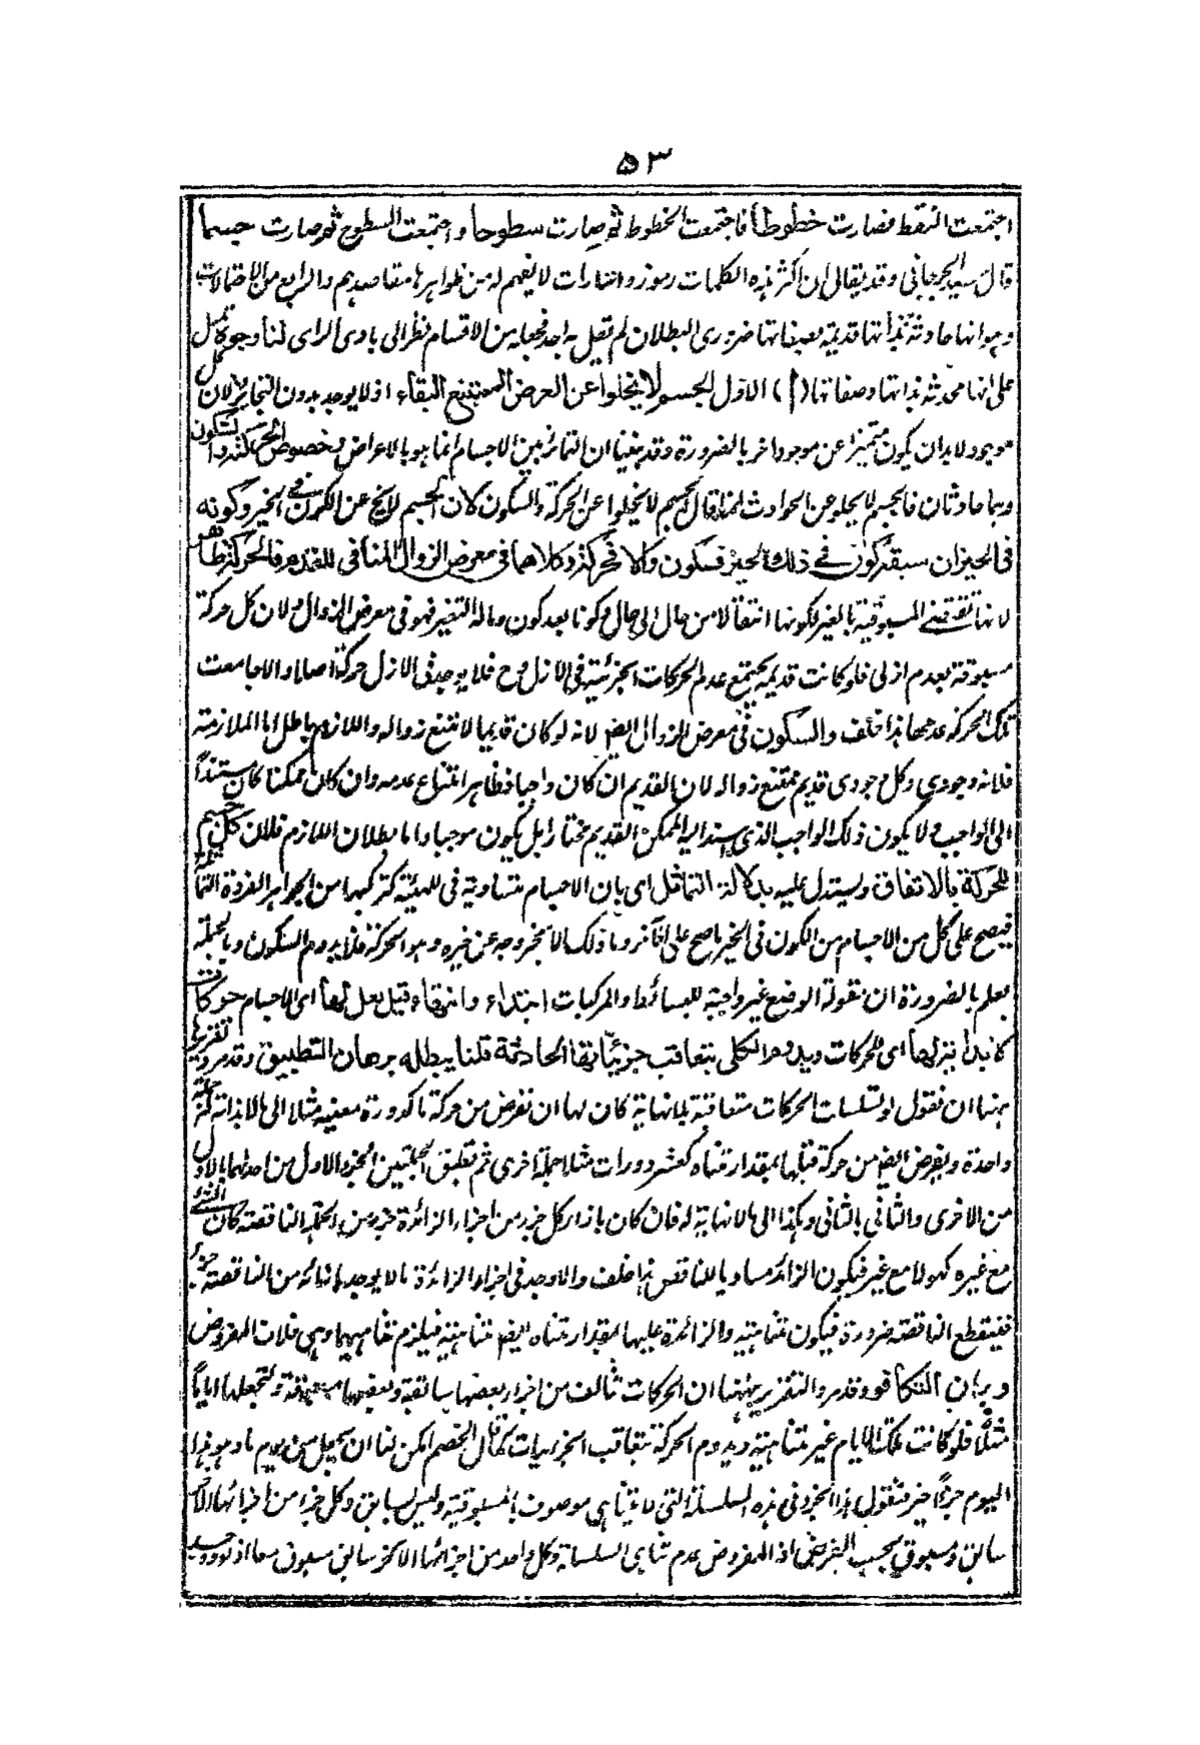 ۵۳
اجتمعت النقط فصارت خطوطا فاجتمعت الخطوط ثم صارت سطوحا واجتمعت السطوح ثم صارت جسما
قال سيد الجرجاني وقد يقال ان اكثر هذه الكلمات رموز واشارات لا يفهم له من ظواهرها مقاصدهم والرابع من الاحتمالات
وهو انها حادثة بذاتها قديمة بصفاتها ضرورى البطلان لم يقل به احد فجعله من الاقسام نظر الى بادى الراى لنا وجوه تدل
على انها محدثة بذاتها وصفاتها (ا) الاول الجسم لا يخلو عن العرض الممتنع البقاء اذ لا يوجد بدون التمايز لان
موجود لا بد ان يكون متميزا عن موجود اخر بالضرورة وقد بينا ان التمايز بين الاجسام انما هو بالاعراض وخصوص الحركة والسكون
وهما حادثان فالجسم لا يخلو عن الحوادث انما قال الجسم لا يخلوا عن الحركة والسكون لان الجسم لا يخ عن الكون في الحيز وكونه
فى الحيز ان سبقه كون في ذلك الحيز فسكون والا فحركة وكلاهما فى معرض الزوال المنافى للقدم اما الحركة فظاهر
لانها تقتضى المسبوقية بالغير لكونها انتقالا من حال الى حال وكونا بعد كون وماله التغير فهو فى معرض الزوال ولان كل حركة
مسبوقة بعدم ازلى فلو كانت قديمة يجتمع عدم الحركات الجزئية فى الازل وح فلا يوجد فى الازل حركة اصلا والا جامعت
تلك الحركة عدمها هذا خلف والسكون فى معرض الزوال ايض لانه لو كان قديما لامتنع زواله واللازم باطل اما الملازمة
فلانه وجودى وكل وجودى قديم يمتنع زواله لان القديم ان كان واجبا فظاهر امتناع عدمه وان كان ممكنا كان مستندا
الى الواجب ولا يكون ذلك الواجب الذى يستند اليه الممكن القديم مختارا بل يكون موجبا واما بطلان اللازم فلان كل جسم
للحركة بالاتفاق ويستدل عليه بدلالة التماثل اى بان الاجسام متساوية فى المهية لتركبها من الجواهر الفردة المتماثلة
فيصح على كل من الاجسام من الكون فى الحيز ما صح على الآخر وما ذلك الا بخروجه عن حيزه وهو الحركة فلا يدوم السكون وبالجملة
يعلم بالضرورة ان مقولة الوضع غير واجبة للبسائط والمركبات ابتداء وانتهاء قيل لعل لها اى الاجسام حركات
لا بداية لها اى للحركات ويدوم الكلى بتعاقب جزئياتها الحادثة قلنا يبطله برهان التطبيق وقد مر وتقريرها
ههنا ان نقول لو تسلسلت الحركات متعاقبة بلا نهاية كان لها ان نفرض من حركة ما كدورة معينة مثلا الى ما لا بداية له جملة
واحدة وبفرض ايض من حركة قبلها بمقدار متناه كعشر دورات مثلا جملة اخرى ثم تطبق الجملتين الجزء الاول من احدهما بالاول
من الاخرى والثانى بالثانى وهكذا الى ما لا نهاية له فان كان بازاء كل جزء من اجزاء الزائدة جزء من الجملة الناقصة كان الشئ
مع غيره كهولا مع غيره فيكون الزائد مساويا للناقص هذا خلف والا وجد فى اجزاء الزائدة ما لا يوجد بازائه من الناقصة جزء
فينقطع الناقصة ضرورة فيكون متناهية والزائدة عليها بمقدار متناه ايض متناهية فيلزم تناهيهما وهى خلاف المفروض
وبرهان التكافؤ وقد مر والتقرير ههنا ان الحركات تتألف من اجزاء بعضها سابقة وبعضها مسبوقة ولنجعلها اياما
مثلا فلو كانت تلك الايام غير متناهية ويدوم الحركة بتعاقب الجزئيات كما قال الخصم امكن لنا ان نجعل من يوم ما وهو هذا
اليوم جزءا اخيرا فنقول هذا الجزء فى هذه السلسلة التى لا تتناهى موصوف بالمسبوقية وليس لسابق وكل جزء من اجزائها الاخر
سابق ومسبوق بحسب الفرض اذ المفروض عدم تناهى السلسلة وكل واحد من اجزائها الاخر سابق مسبوق معا اذ لو وجد